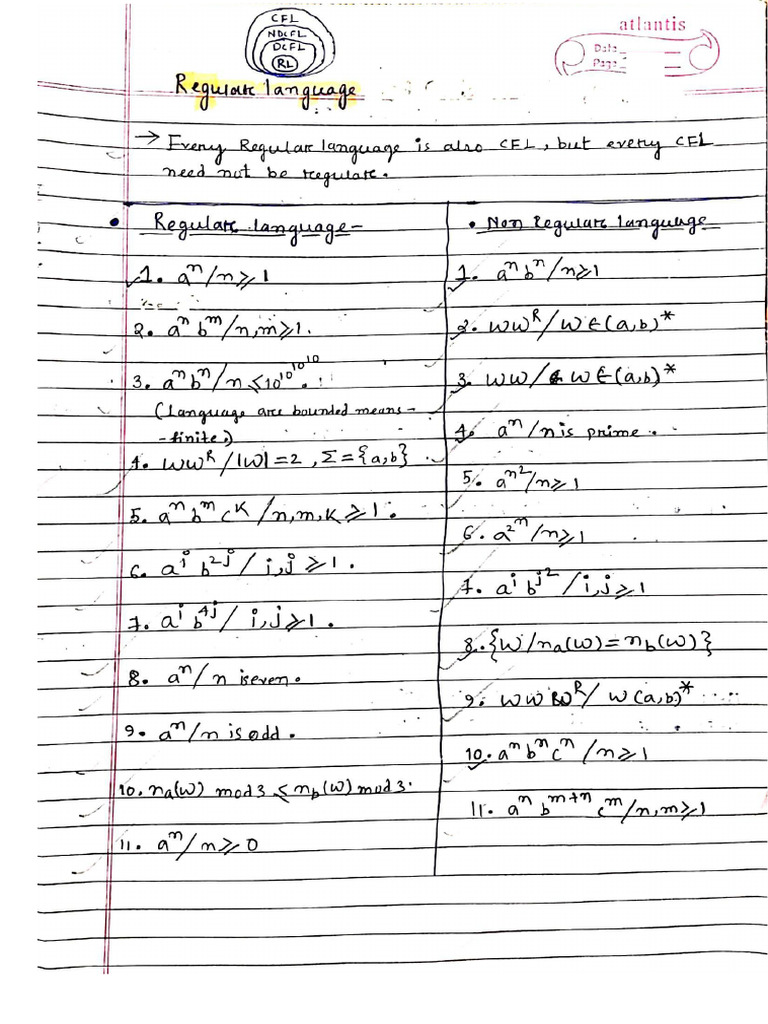 CFL
NDCFL
DCFL
RL
atlantis
Date
Page
Regular language
→ Every Regular language is also CFL, but every CFL
need not be regular.
• Regular language-
1. aⁿ/n⩾1
2. aⁿ bᵐ/n,m⩾1.
3. aⁿbⁿ/n⩽10^10^10^10.
(Language are bounded means-
-finite.)
4. WWᴿ/|W|=2, Σ={a,b}
5. aⁿ bᵐ cᴷ/n,m,K⩾1.
6. aⁱ b²ʲ/ i,j ⩾1.
7. aⁱ b⁴ʲ/ i,j⩾1.
8. aⁿ/n is even.
9. aⁿ/n is odd.
10. nₐ(W) mod 3 ⩽ n_b(W) mod 3.
11. aⁿ/n⩾0
• Non regular language
1. aⁿbⁿ/n⩾1
2. WWᴿ/W∈(a,b)*
3. WW/ W∈(a,b)*
4. aⁿ/n is prime.
5. a^n^2/n⩾1
6. a^2^n/n⩾1
7. aⁱ b^j^2/i,j⩾1
8. {W/nₐ(W)=n_b(W)}
9. WWᴿ/ W(a,b)*
10. aⁿbⁿcⁿ/n⩾1
11. aⁿ bᵐ⁺ⁿ cᵐ/n,m⩾1